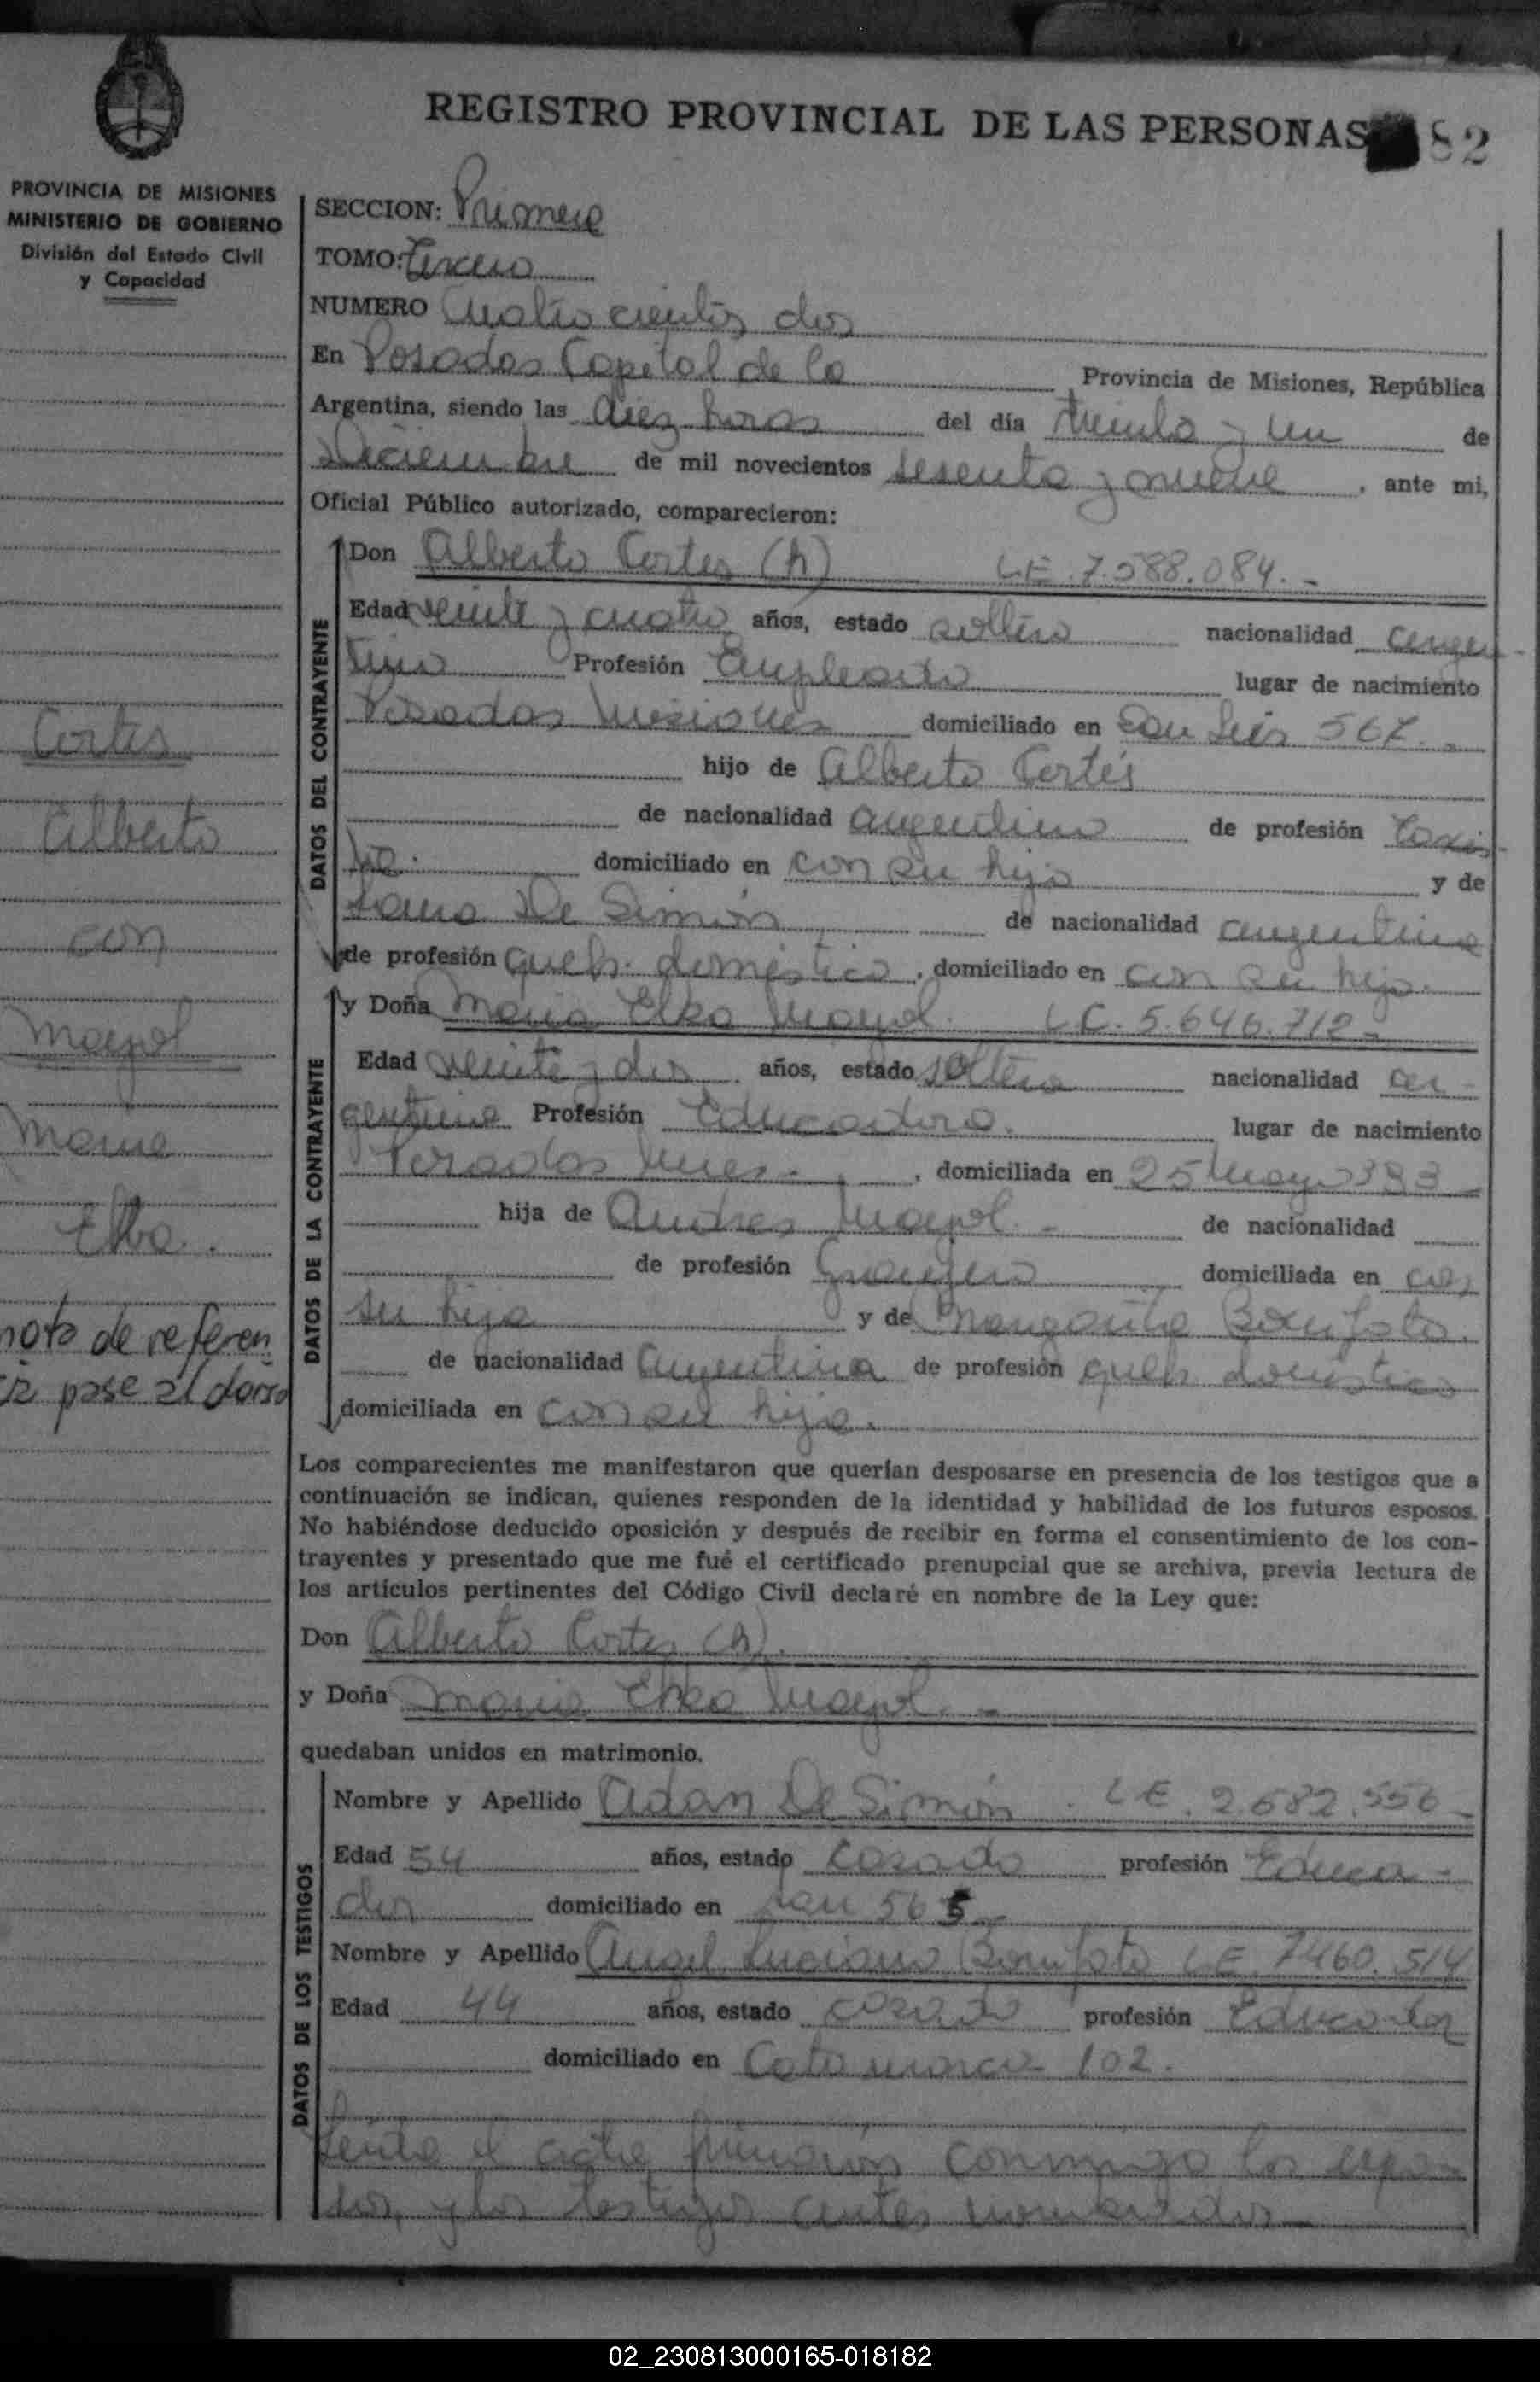 REGISTRO PROVINCIAL DE LAS PERSONAS 82
PROVINCIA DE MISIONES
MINISTERIO DE GOBIERNO
División del Estado Civil
y Capacidad
SECCION: Primera
TOMO: tercero
NUMERO Cuatrocientos dos
En Posadas Capital de la Provincia de Misiones, República
Argentina, siendo las diez horas del día treinta y un de
Diciembre de mil novecientos sesenta y nueve, ante mi,
Oficial Público autorizado, comparecieron:
DATOS DEL CONTRAYENTE
Don Alberto Cortes (h) LE. 7.588.084.-
Edad veinte y cuatro años, estado soltero nacionalidad argen-
tino Profesión Empleado lugar de nacimiento
Posadas Misiones domiciliado en San Luis 567.-
hijo de Alberto Cortés
de nacionalidad argentino de profesión taxis-
ta. domiciliado en con su hijo y de
De Simón de nacionalidad argentina
de profesión queh. domestico, domiciliado en con su hijo.
DATOS DE LA CONTRAYENTE
y Doña Maria Elba Mayol. LC. 5.646.712-
Edad veinte y dos años, estado soltera nacionalidad ar-
gentina Profesión Educadora. lugar de nacimiento
Posadas Mnes., domiciliada en 25 Mayo 383-
hija de Andres Mayol.- de nacionalidad
de profesión Granjero domiciliada en con
su hija y de Margarita Bonifato.
de nacionalidad argentina de profesión queh domestico
domiciliada en con su hija.
Cortes
Alberto
con
Mayol
Maria
Elba.
nota de referen
pase al dorso
Los comparecientes me manifestaron que querían desposarse en presencia de los testigos que a
continuación se indican, quienes responden de la identidad y habilidad de los futuros esposos.
No habiéndose deducido oposición y después de recibir en forma el consentimiento de los con-
trayentes y presentado que me fué el certificado prenupcial que se archiva, previa lectura de
los artículos pertinentes del Código Civil declaré en nombre de la Ley que:
Don Alberto Cortes (h).
y Doña Maria Elba Mayol.-
quedaban unidos en matrimonio.
DATOS DE LOS TESTIGOS
Nombre y Apellido Adan De Simón. LE. 2.682.556-
Edad 54 años, estado casado profesión Educa-
dor domiciliado en 565
Nombre y Apellido Angel Luciano Bonifato LE 7460.514
Edad 44 años, estado casado profesión Educador
domiciliado en Catamarca 102.
el acta firmaron conmigo los espo-
sos, y los testigos antes nombrados-
02_230813000165-018182